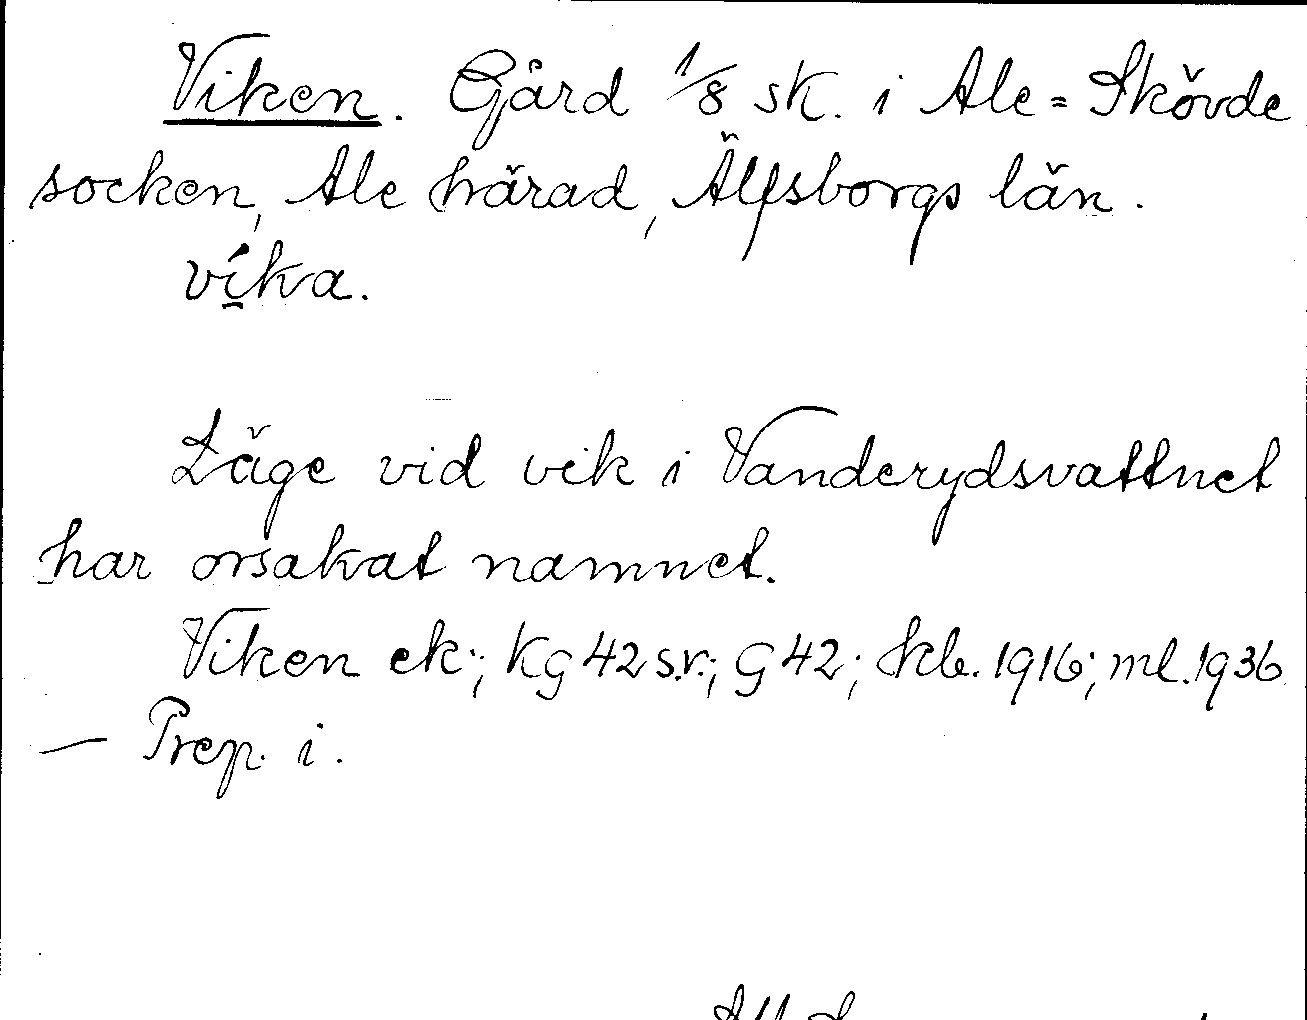 Viken. Gård 1/8 sk. i Ale=Skövde
socken, Ale härad, Älfsborgs län.
víka.
Läge vid vik i Vanderydsvattnet
har orsakat namnet.
Viken ek; Kg 42 s.v.; G 42; Skb. 1916; ml. 1936
— Prep. i.